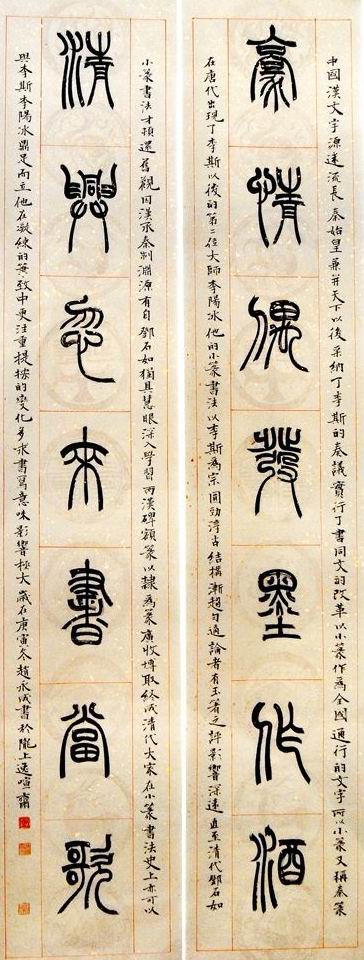 中國漢文字源遠流長秦始皇兼并天下以後采納了李斯的奏議實行了書同文的改革以小篆作為全國通行的文字所以小篆又稱秦篆
豪情偶發墨作酒
在唐代出現了李斯以後的第二位大師李陽冰他的小篆書法以李斯為宗圓勁淳古結構漸趨勻適論者有玉箸之評影響深遠直至清代鄧石如
小篆書法才頓還舊觀因漢承秦制淵源有自鄧石如獨具慧眼深入學習兩漢碑額篆以隸為篆廣收博取終成清代大家在小篆書法史上亦可以
清興忽來書當歌
與李斯李陽冰鼎足而立他在凝練的筆致中更注重提按的變化多求書寫意味影響極大歲在庚寅冬趙永成書於隴上逸喧齋